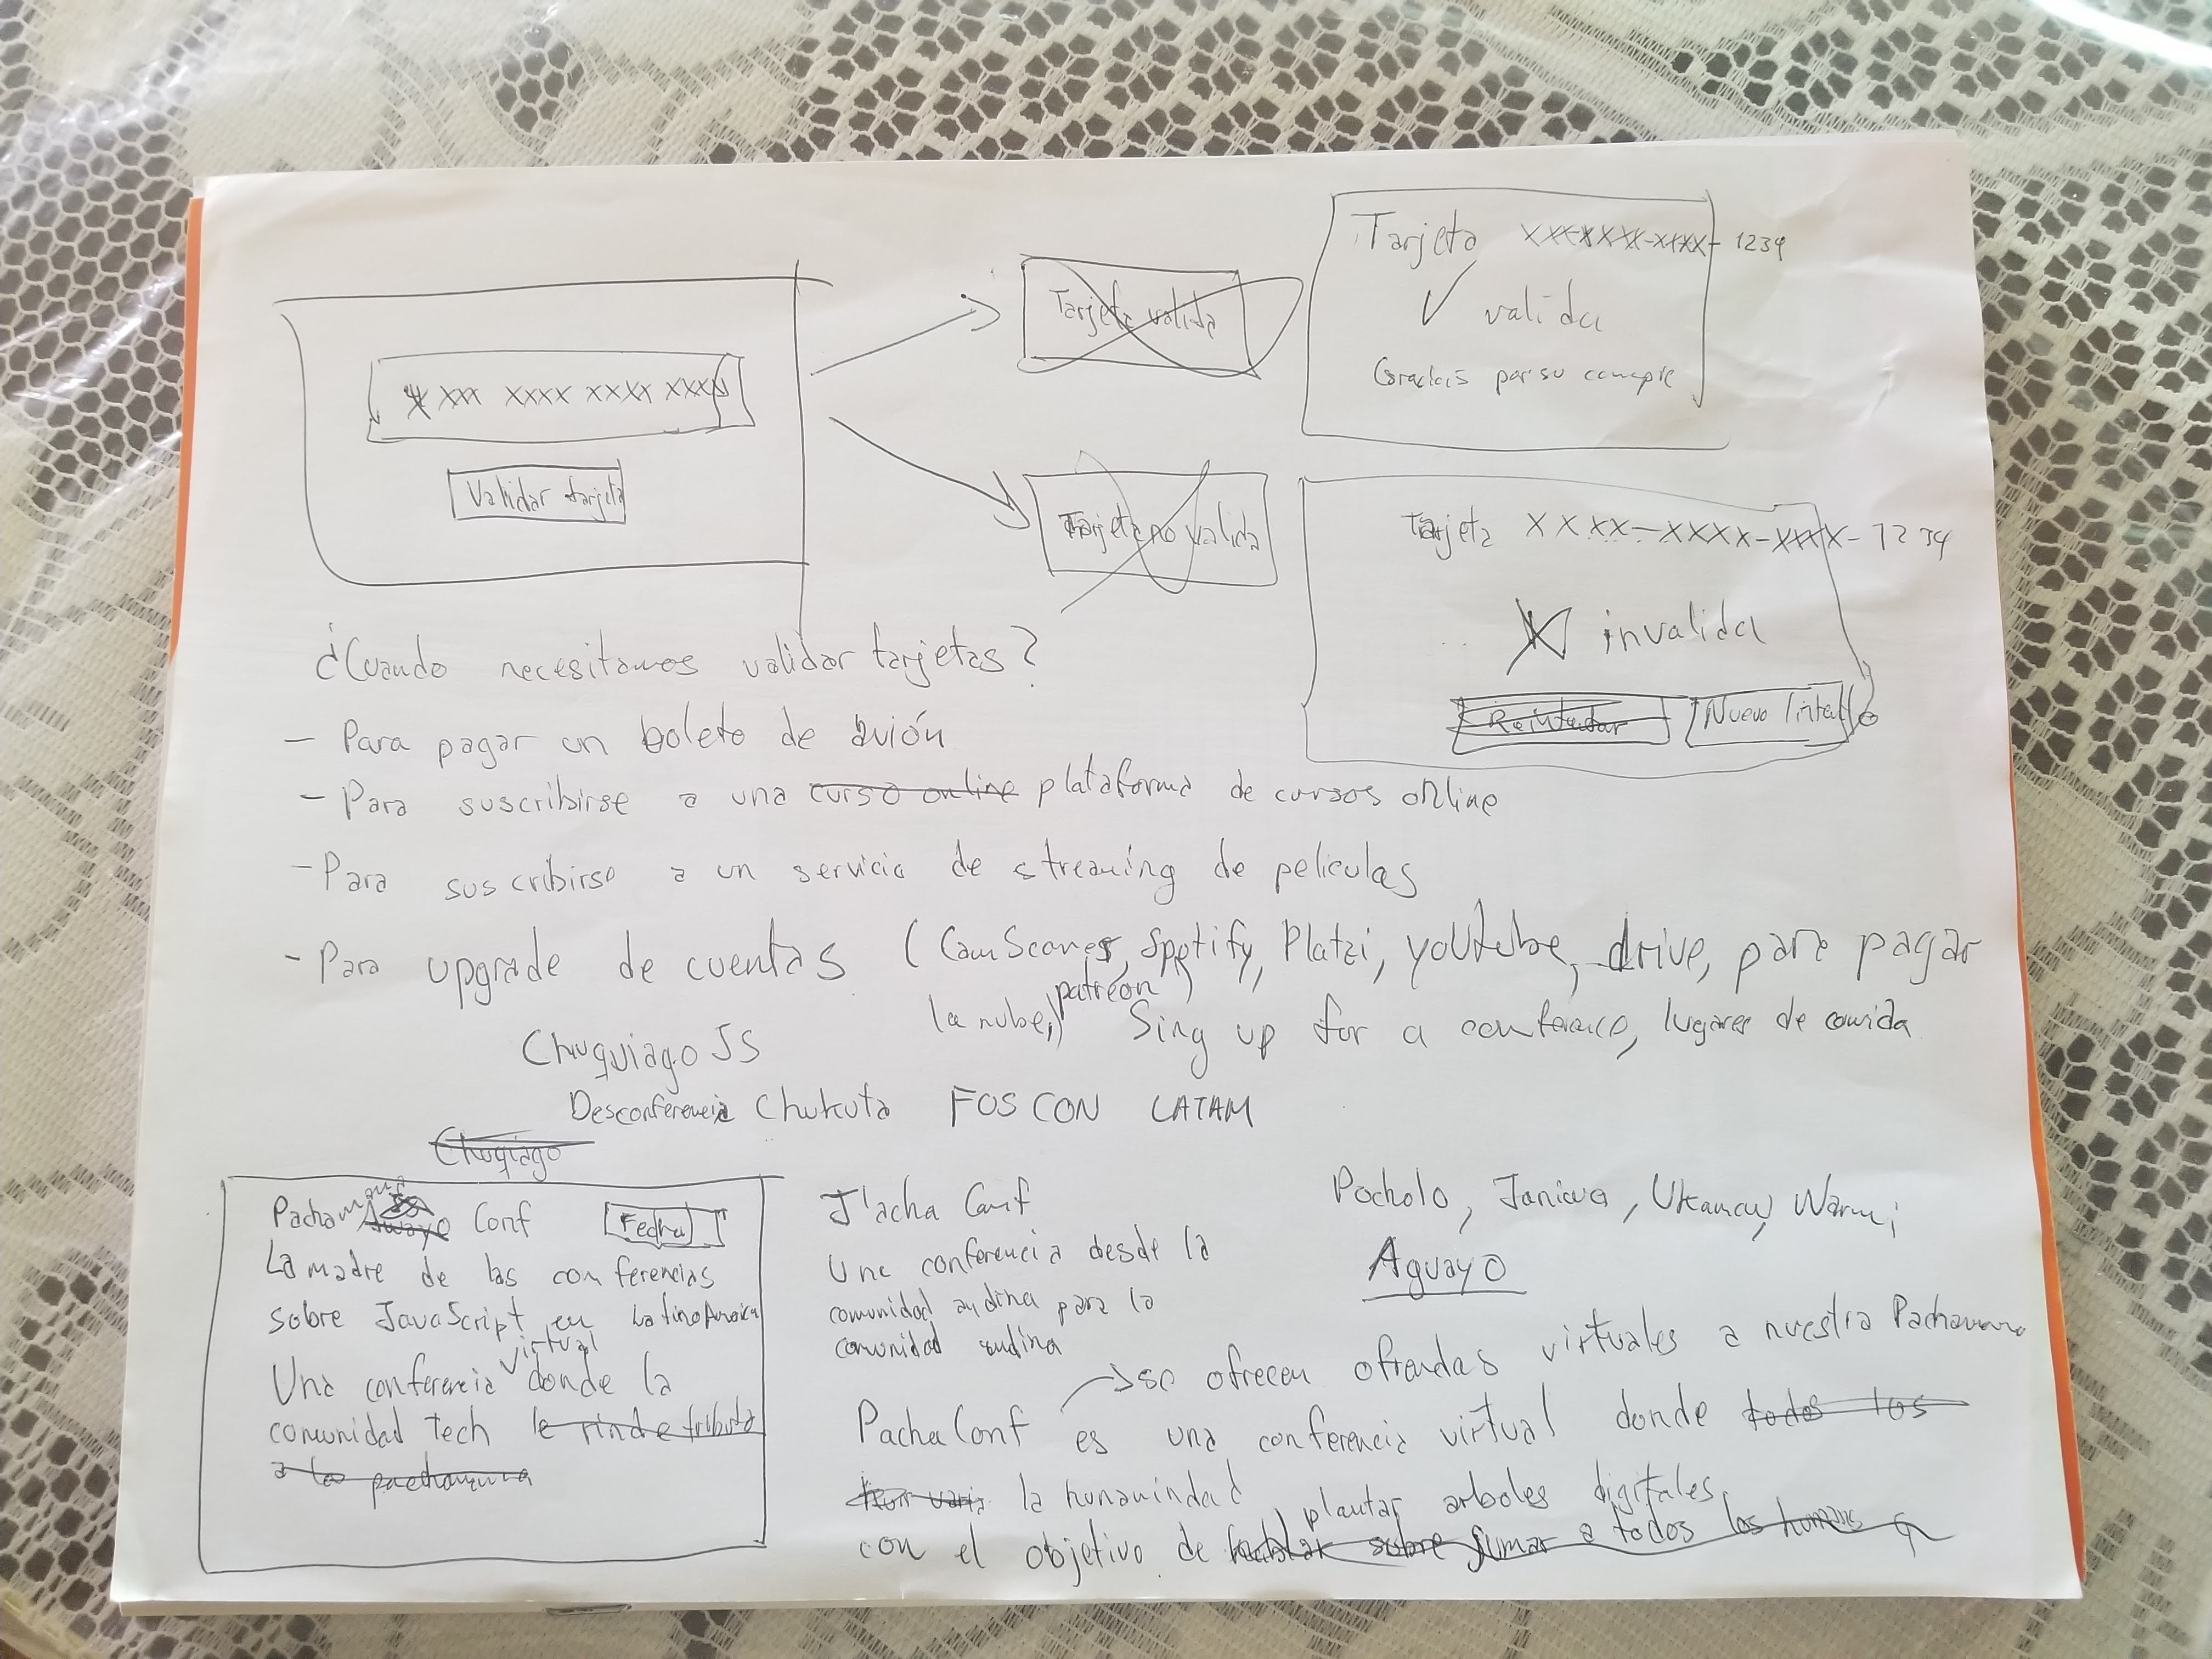 XXXX XXXX XXXX XXXX
Validar tarjeta
Tarjeta valida
Tarjeta no valida
Tarjeta XXXX-XXXX-XXXX-1234
✓ valida
Gracias por su compra
Tarjeta XXXX-XXXX-XXXX-1234
X invalida
Reintentar Nuevo Intento
¿Cuando necesitamos validar tarjetas?
- Para pagar un boleto de avión
- Para suscribirse a una curso online plataforma de cursos online
- Para suscribirse a un servicio de streaming de peliculas
- Para upgrade de cuentas (CamScaner, Spotify, Platzi, youtube, drive, para pagar
la nube, patreon) Sing up for a conference, lugares de comida
Chuquiago JS
Desconferencia Chukuta FOSCON LATAM
Chuqiago
Pachamama Awayo Conf Fecha
La madre de las conferencias
sobre JavaScript en LatinoAmerica
Una conferencia virtual donde la
comunidad tech le rinde tributo
a la pachamama
J'acha Conf
Una conferencia desde la
comunidad andina para la
comunidad andina
Pocholo, Janiwa, Ukamau, Warmi
Aguayo
→ se ofrecen ofrendas virtuales a nuestra Pachamama
PachaConf es una conferencia virtual donde todos los
la humanindad plantar arboles digitales
con el objetivo de hablar sobre sumar a todos los humanos q